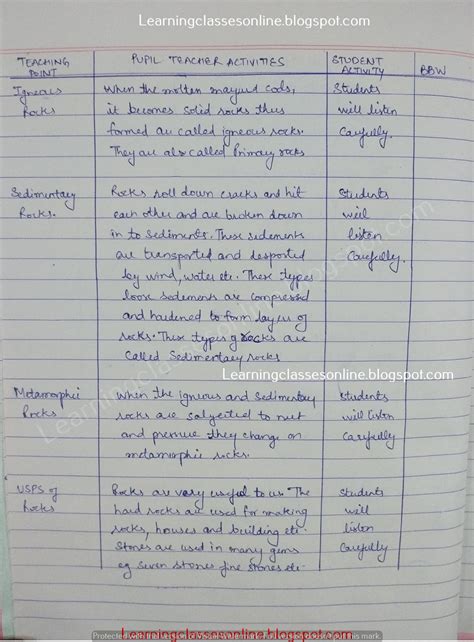 Learningclassesonline.blogspot.com
TEACHING POINT
PUPIL TEACHER ACTIVITIES
STUDENT ACTIVITY
BBW
Igneous Rocks
When the molten cools,
it becomes solid rocks thus
formed are called igneous rocks.
They are also called Primary rocks
Students
will listen
Carefully.
Sedimentary
Rocks.
Rocks roll down cracks and hit
each other and are broken down
in to Sediments. These sediments
are transported and
by wind, water etc. These types
loose sediments are compressed
and hardened to form layers of
rocks. These types of rocks are
Called Sedimentary rocks
Students
will
listen
Carefully.
Learningclassesonline.blogspot.com
Metamorphic
Rocks
When the igneous and Sedimentary
rocks are to
and pressure they change on
metamorphic rocks.
Students
will listen
Carefully
USPS of
Rocks
Rocks are very useful to us. The
hard rocks are used for making
rocks, houses and building etc.
Stones are used in many gems
eg Seven Stones fine Stones etc.
Students
will
listen
Carefully
Learningclassesonline.blogspot.com